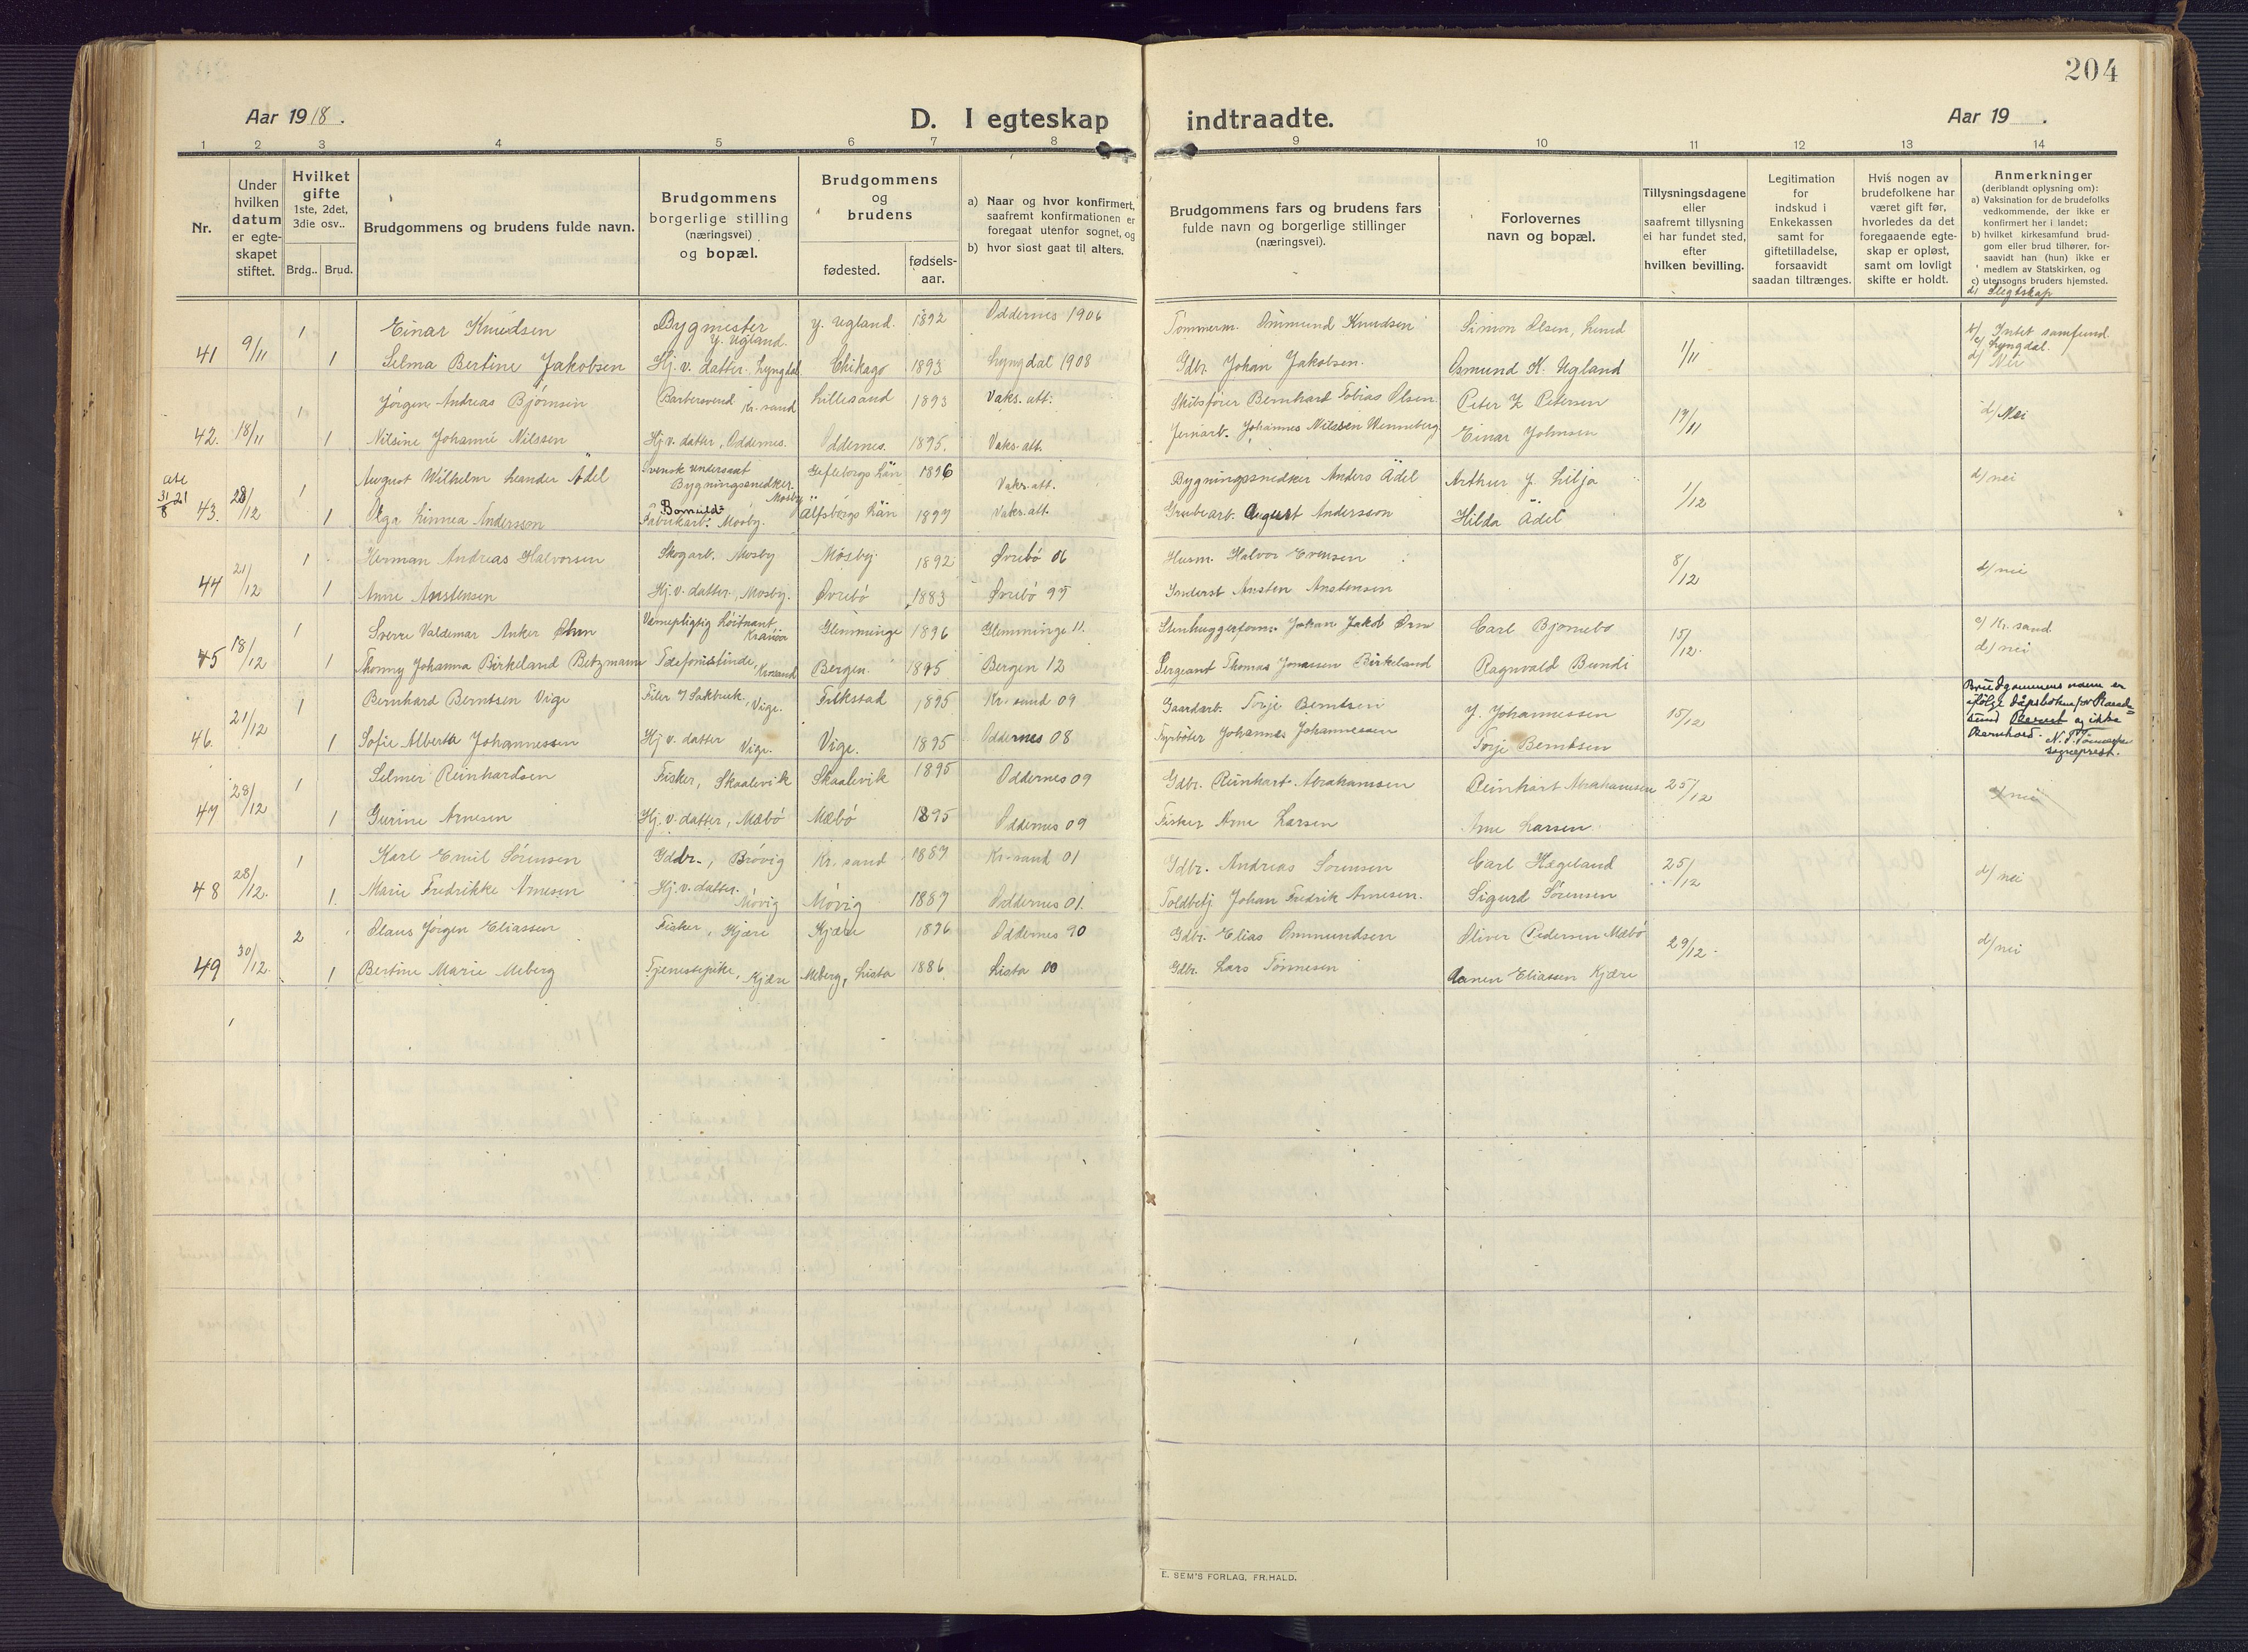 204
Aar 1918.
D. I egteskap indtraadte.
Aar 19 .
1 2 3 4 5 6 7 8 9 10 11 12 13 14
Nr.
Under hvilken datum er egteskapet stiftet.
Hvilket gifte 1ste, 2det, 3die osv..
Brdg.. Brud.
Brudgommens og brudens fulde navn.
Brudgommens borgerlige stilling (næringsvei) og bopæl.
Brudgommens og brudens
fødested.
fødsels-aar.
a) Naar og hvor konfirmert, saafremt konfirmationen er foregaat utenfor sognet, og
b) hvor sidst gaat til alters.
Brudgommens fars og brudens fars fulde navn og borgerlige stillinger (næringsvei).
Forlovernes navn og bopæl.
Tillysningsdagene eller saafremt tillysning ei har fundet sted, efter hvilken bevilling.
Legitimation for indskud i Enkekassen samt for giftetilladelse, forsaavidt saadan tiltrænges.
Hvis nogen av brudefolkene har været gift før, hvorledes da det foregaaende egteskap er opløst, samt om lovligt skifte er holdt.
Anmerkninger
(deriblandt oplysning om):
a) Vaksination for de brudefolks vedkommende, der ikke er konfirmert her i landet;
b) hvilket kirkesamfund brudgom eller brud tilhører, forsaavidt han (hun) ikke er medlem av Statskirken, og
c) utensogns bruders hjemsted.
d) Slegtskap
1 Einar Knudsen Bygmester Y. Ugland. Y. Ugland. 1892 Oddernes 1906 Tømmerm. Ommund Knudsen Simon Olsen, Lund b/ Intet samfund
41 9/11 1 Selma Bertine Jakobsen Hj. v. datter. Lyngdal Chikago 1893 Lyngdal 1908 Gdbr. Johan Jakobsen. Osmund K. Ugland 1/11 c/ Lyngdal. d/ Nei
1 Jørgen Andreas Bjørnsen Barbersvend Kr. sand Lillesand 1893 Vaks. att. Skibsfører Bernhart Tobias Olsen. Peter Z Petersen
42. 18/11 1 Nilsine Johanne Nilssen Hj. v. datter, Oddernes. Oddernes. 1895. Vaks. att. Jernarb. Johannes Nilssen Wenneberg Einar Johnsen 17/11 d/ Nei
1 August Wilhelm Leander Ädel Svensk undersaat Bygningssnedker. Mosby Gefleborgs Län 1896 Vaks. att. Bygningssnedker Anders Ädel Arthur J. Lilja d/ nei
31/8 21 43. 28/12 1 Olga Linnea Andersson Bomuld- Fabrikarb. Mosby. Älfsborgs Län 1897 Vaks. att. Grubearb. August Andersson Hilda Ädel 1/12
1 Herman Andreas Halvorsen Skogarb. Mosby Mosby. 1892 Øvrebø 06 Husm. Halvor Evensen
44 21/12 1 Anne Anstensen Hj. v. datter, Mosby. Øvrebø 1883 Øvrebø 97 Inderst Ansten Anstensen 8/12 d/ nei
1 Sverre Valdemar Anker Værnepligtig Løitnant Glemminge 1896 Glemminge 11. Johan Jakob Carl Bjørnebo c/ Kr. sand
45 18/12 1 Thonny Johanna Birkeland Betzmann Telefonistinde, Krsand Bergen. 1895 Bergen 12 Sergeant Thomas Jonassen Birkeland Ragnvald Bundi 15/12. d/ nei
1 Bernhard Berntsen Vige Vige. 1895 Kr. sund 09 Gaardarb. Torje Berntsen J. Johannessen Brudgommens navn er ifølge dåpsboken for
46. 21/12 1 Sofie Alberta Johannessen Hj v. datter Vige. Vige. 1895 Oddernes 08 Fyrbøter Johannes Johannessen Torje Berntsen 15/12 Berent og ikke Bernhard. N. P. sogneprest.
1 Selmer Reinhardsen Fisker, Skaalevik Skaalevik 1895 Oddernes 09 Gdbr. Reinhart Abrahamsen Reinhart Abrahamsen 25/12
47 28/12 1 Gurine Arnesen Hj. v. datter, Mæbø Mæbø 1895 Oddernes 09 Fisker Arne Larsen Arne Larsen d/ nei
1 Karl Emil Sørensen Gdbr., Brøvig Kr. sand 1887 Kr. sand 01 Gdbr. Andreas Sørensen Carl Hægeland 25/12
48 28/12. 1. Marie Fredrikke Arnesen Hj. v. datter. Møvig Møvig 1887 Oddernes 01. Toldbetj Johan Fredrik Arnesen. Sigurd Sørensen d/ nei
2 Olaus Jørgen Eliassen Fisker, Kjære Kjære 1876 Oddernes 90 Gdbr. Elias Ommundsen Oliver Pedersen Mæbø
49 30/12. 1 Bertine Marie Meberg Tjenestepike, Kjære Meberg, Lista 1886 Lista 00 Gdbr. Lars Tønnesen Aanen Eliassen Kjære 29/12. d/ nei
E. SEM'S FORLAG, FR.HALD.